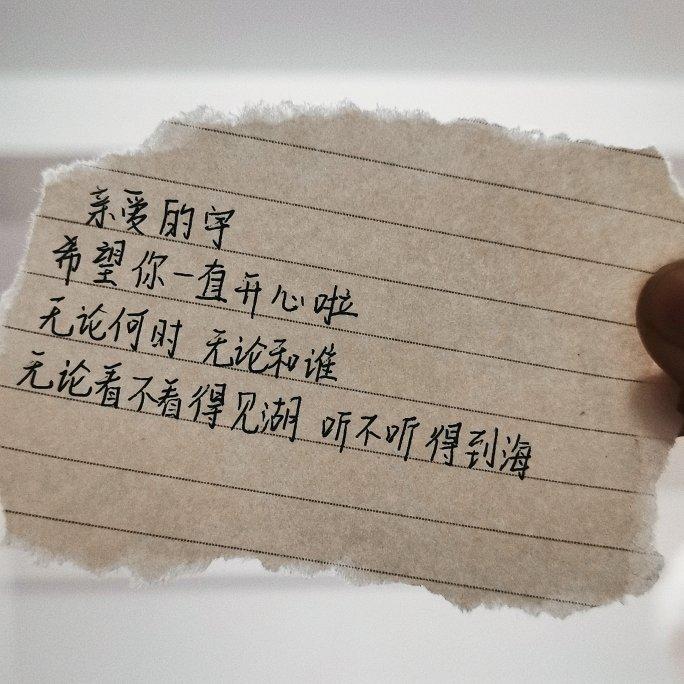 亲爱的宇
希望你一直开心啦
无论何时 无论和谁
无论看不看得见湖 听不听得到海